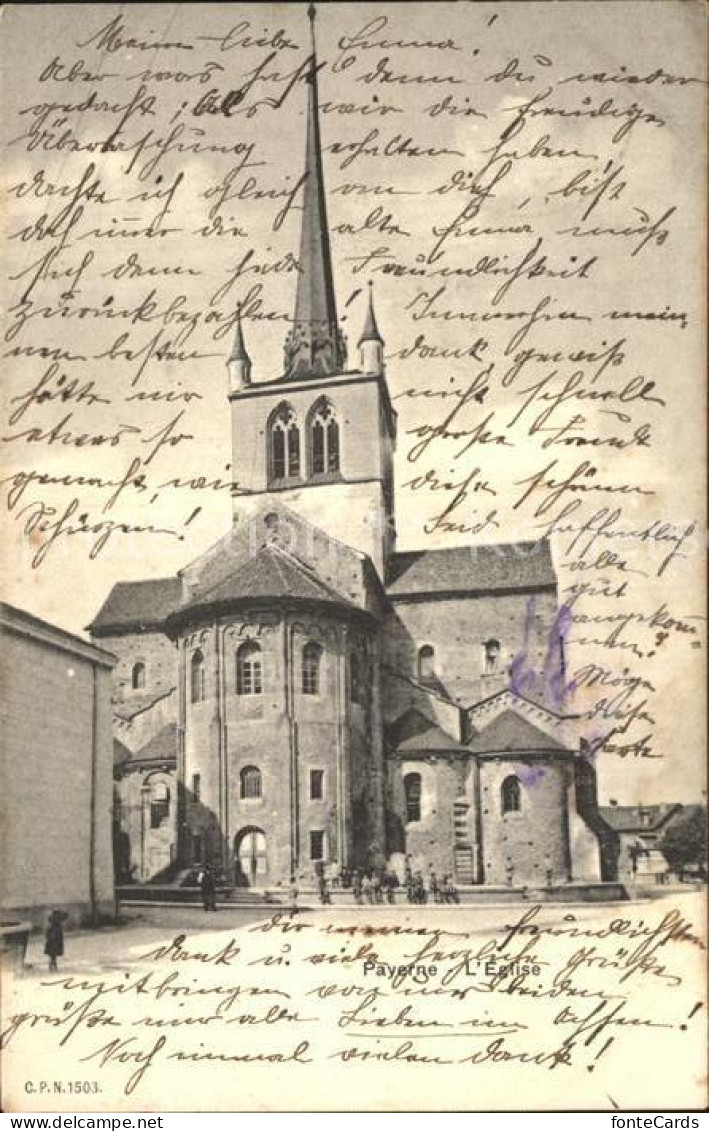 Meine liebe Emma!
Aber was hast denn du wieder
gedacht; Als wir die freudige
Überraschung erhalten haben,
dachte ich gleich von dir, bist
doch immer die alte Emma, muß
sich denn jede Freundlichkeit
zurückbezahlen! Immerhin mein-
nen besten dank, gewiß
hätte mir nicht schnell
etwas so große Freude
gemacht, wie diese schönen
Schürzen! Seid hoffentlich
alle
gut
angekom-
men!
Möge
diese
Karte
dir meinen freundlichsten
dank u. viele herzliche Grüße
Payerne L'Église
mitbringen von uns beiden
grüße mir alle Lieben im Ochsen!
Noch einmal vielen dank!
C.P.N.1503.
fonteCards
www.fontecards.com